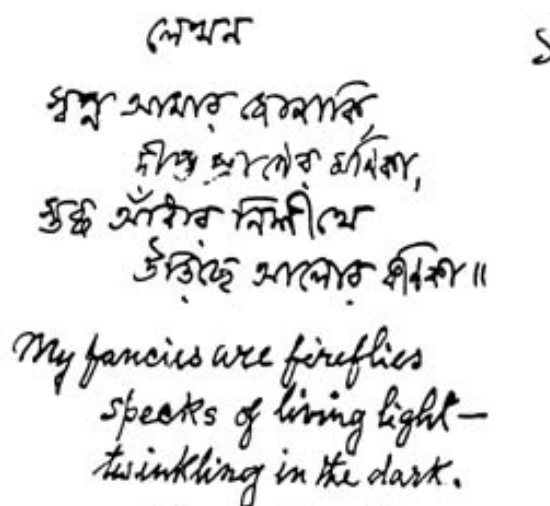 লেখন
স্বপ্ন আমার জোনাকি,
দীপ্ত প্রাণের মণিকা,
স্তব্ধ আঁধার নিশীথে
উড়িছে আলোর কণিকা॥
My fancies are fireflies
specks of living light—
twinkling in the dark.